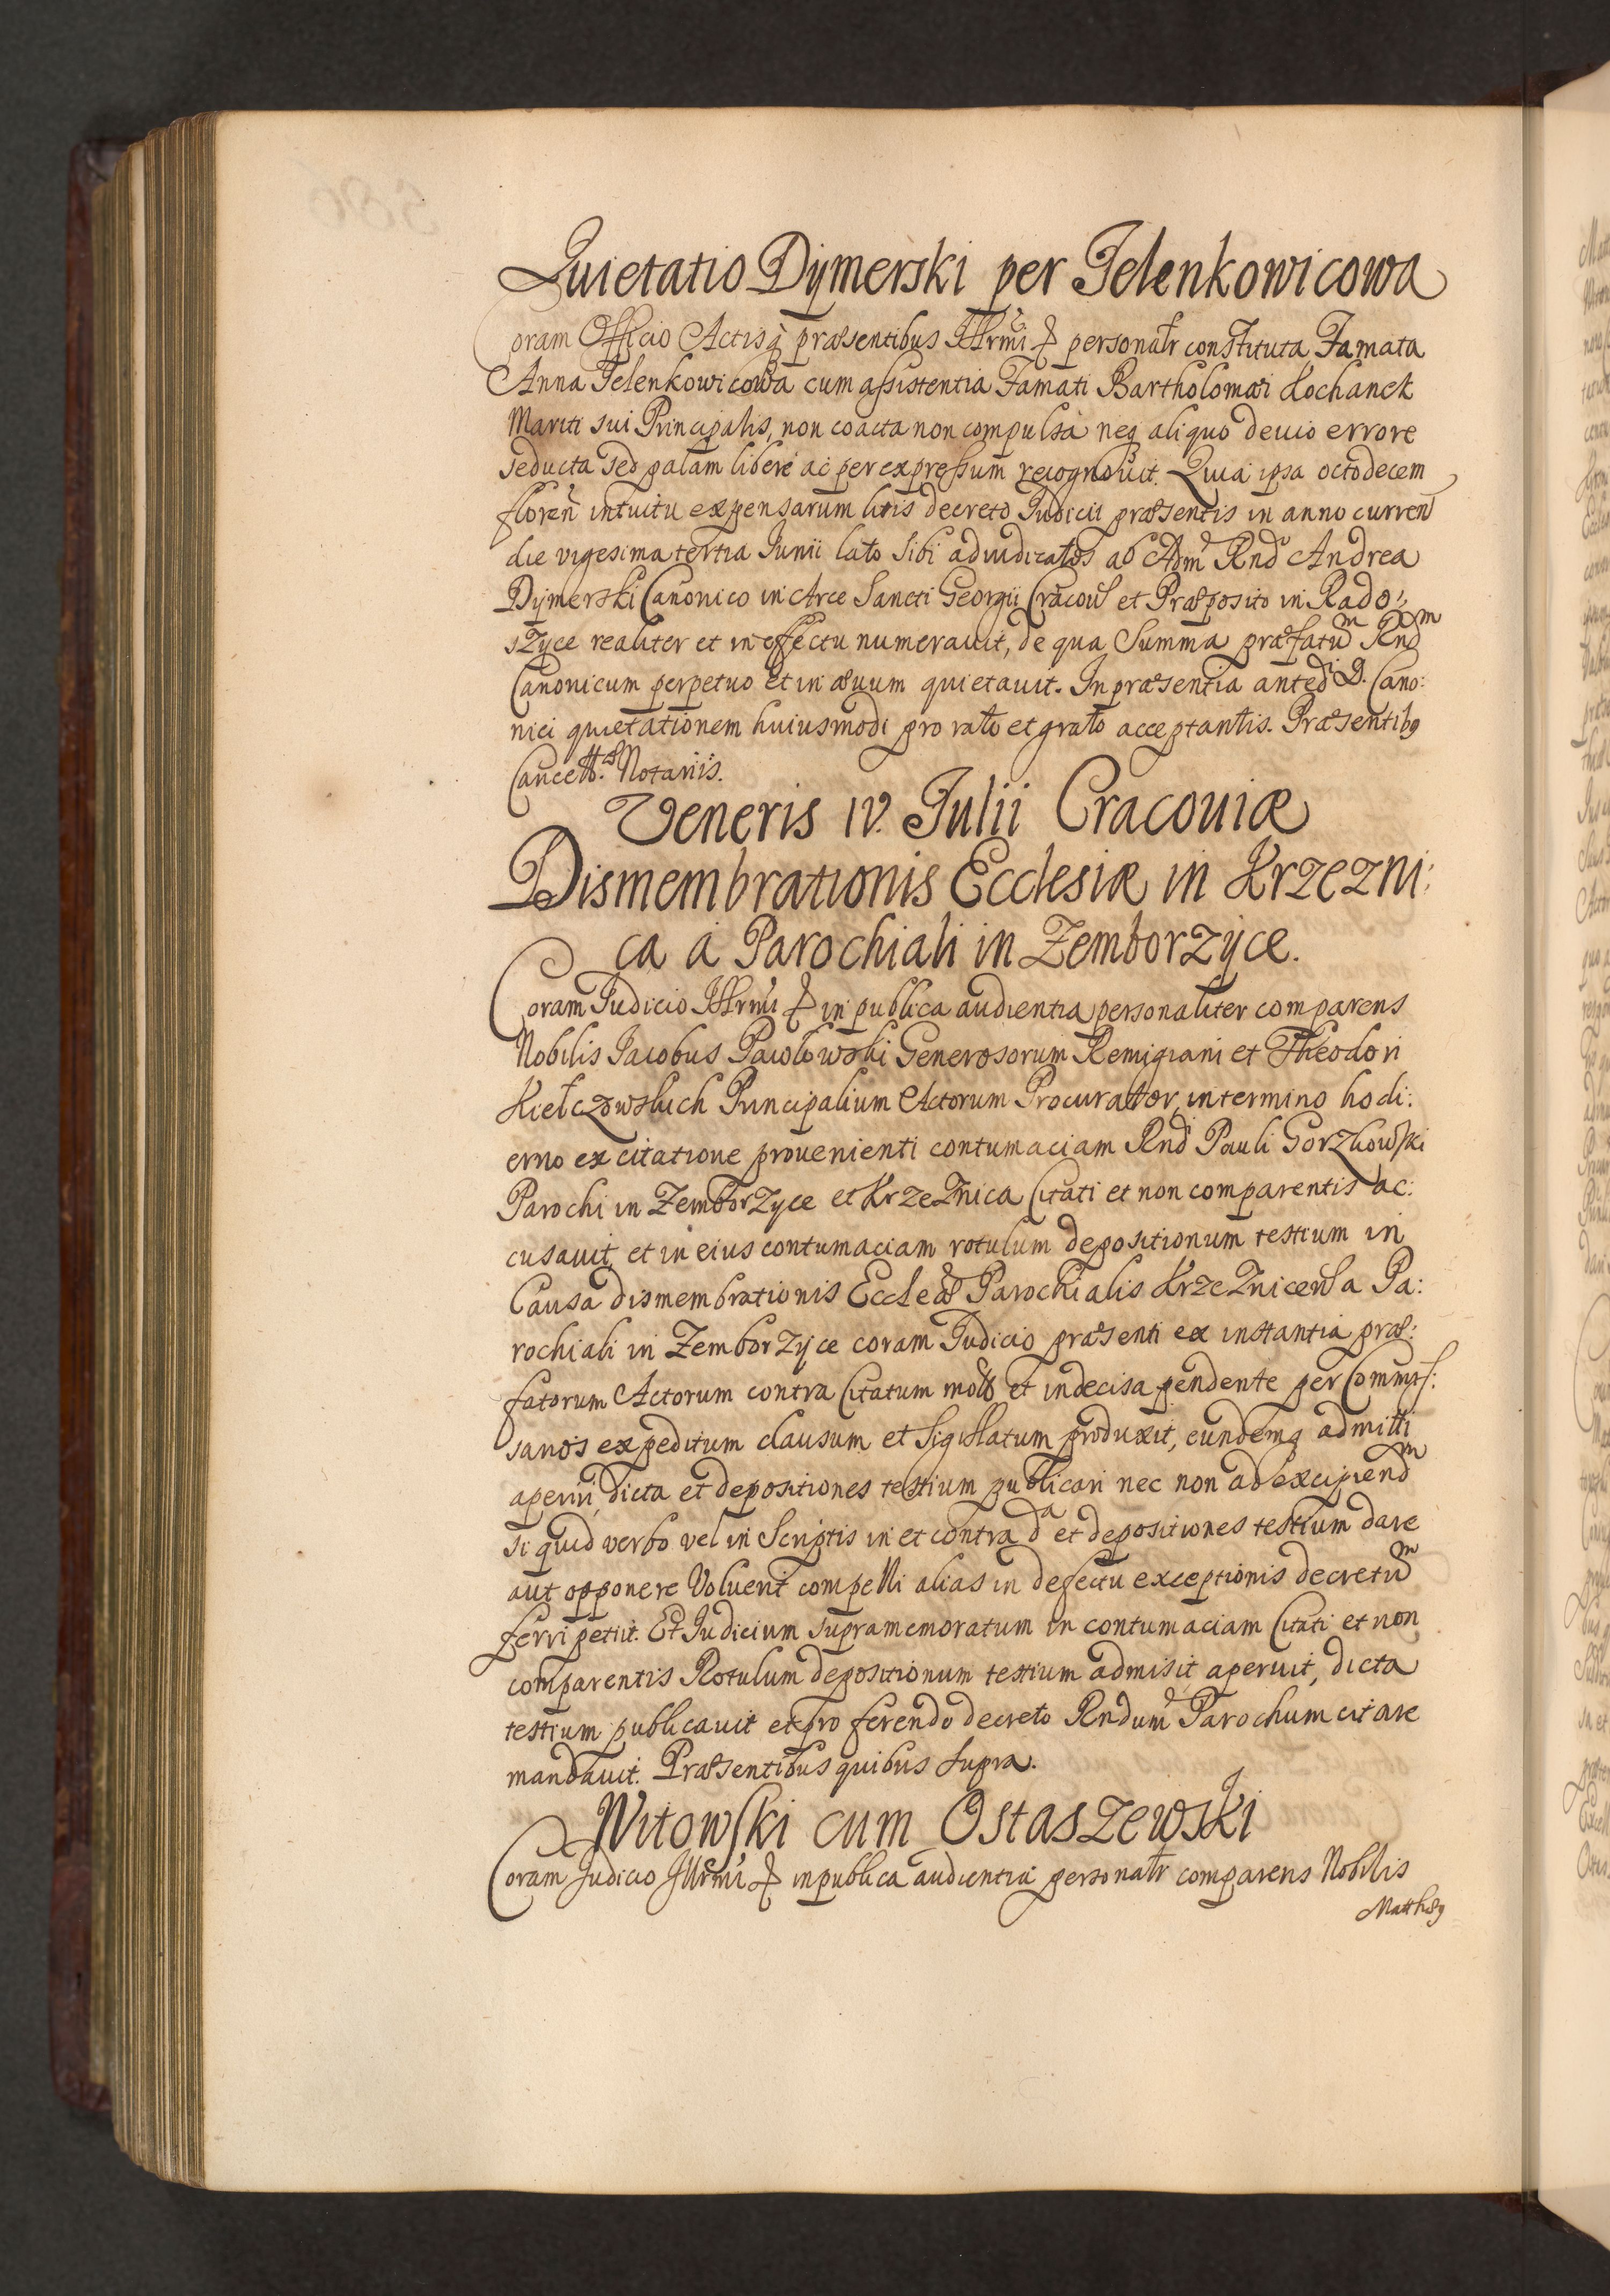 Quietatio Dÿmerski per Jelenkowicowa
Coram Officio Actisq̀ præsentibus Illrmi & personalr constituta Famata
Anna Jelenkowicowa cum assistentia Famati Bartholomæi Kochanek
Mariti sui Principalis, non coacta non compulsa neq aliquo deuio errore
seducta sed palam libere ac per expressum recognouit. Quia ipsa octodecem
floren intuitu expensarum litis decreto Judicii præsentis in anno curren
die vigesima tertia Junii lato sibi adiudicatos ab Adm Rnd Andrea
Dÿmerski Canonico in Arce Sancti Georgii Cracou et Præposito in Rado:
szÿce realiter et in effectu numerauit, de qua Summa præfatum Rndm
Canonicum perpetuo et in æuum quietauit. In præsentia antedi D. Cano:
nici quietationem huiusmodi pro rato et grato acceptantis. Præsentib9
Cancell. Notariis.
Veneris IV. Julii Cracouiæ
Dismembrationis Ecclesiæ in Krzezni:
ca a Parochiali in Zemborzÿce.
Coram Judicio Illrmi & in publica audientia personaliter comparens
Nobilis Jacobus Pawłowski Generosorum Remigiani et Theodori
Kiełczowskich Principalium Actorum Procurator, in termino hodi:
erno ex citatione prouenienti contumaciam Rndi Pauli Gorzkowski
Parochi in Zemborzyce et Krzeznica Citati et non comparentis ac:
cusauit, et in eius contumaciam rotulum depositionum testium in
Causa dismembrationis Eccleæ Parochialis Krzeznicens a Pa:
rochiali in Zemborzÿce coram Judicio præsenti ex instantia præ:
fatorum Actorum contra Citatum mota et indecisa pendente per Commis:
sarios expeditum clausum et sigillatum produxit, eundemq admitti
aperiri dicta et depositiones testium publicari nec non ad excipiendm
si quid verbo vel in Scriptis in et contra da et depositiones testium dare
aut opponere Voluerit compelli alias in defectu exceptionis decretum
ferri petiit. Et Judicium supramemoratum in contumaciam Citati et non
comparentis Rotulum depositionum testium admisit aperuit, dicta
testium publicauit et pro ferendo decreto Rndum Parochum citare
mandauit. Præsentibus quibus supra.
Witowski cum Ostaszewski
Coram Judicio Illrmi & in publica audientia personalr comparens Nobilis
Matthæ9